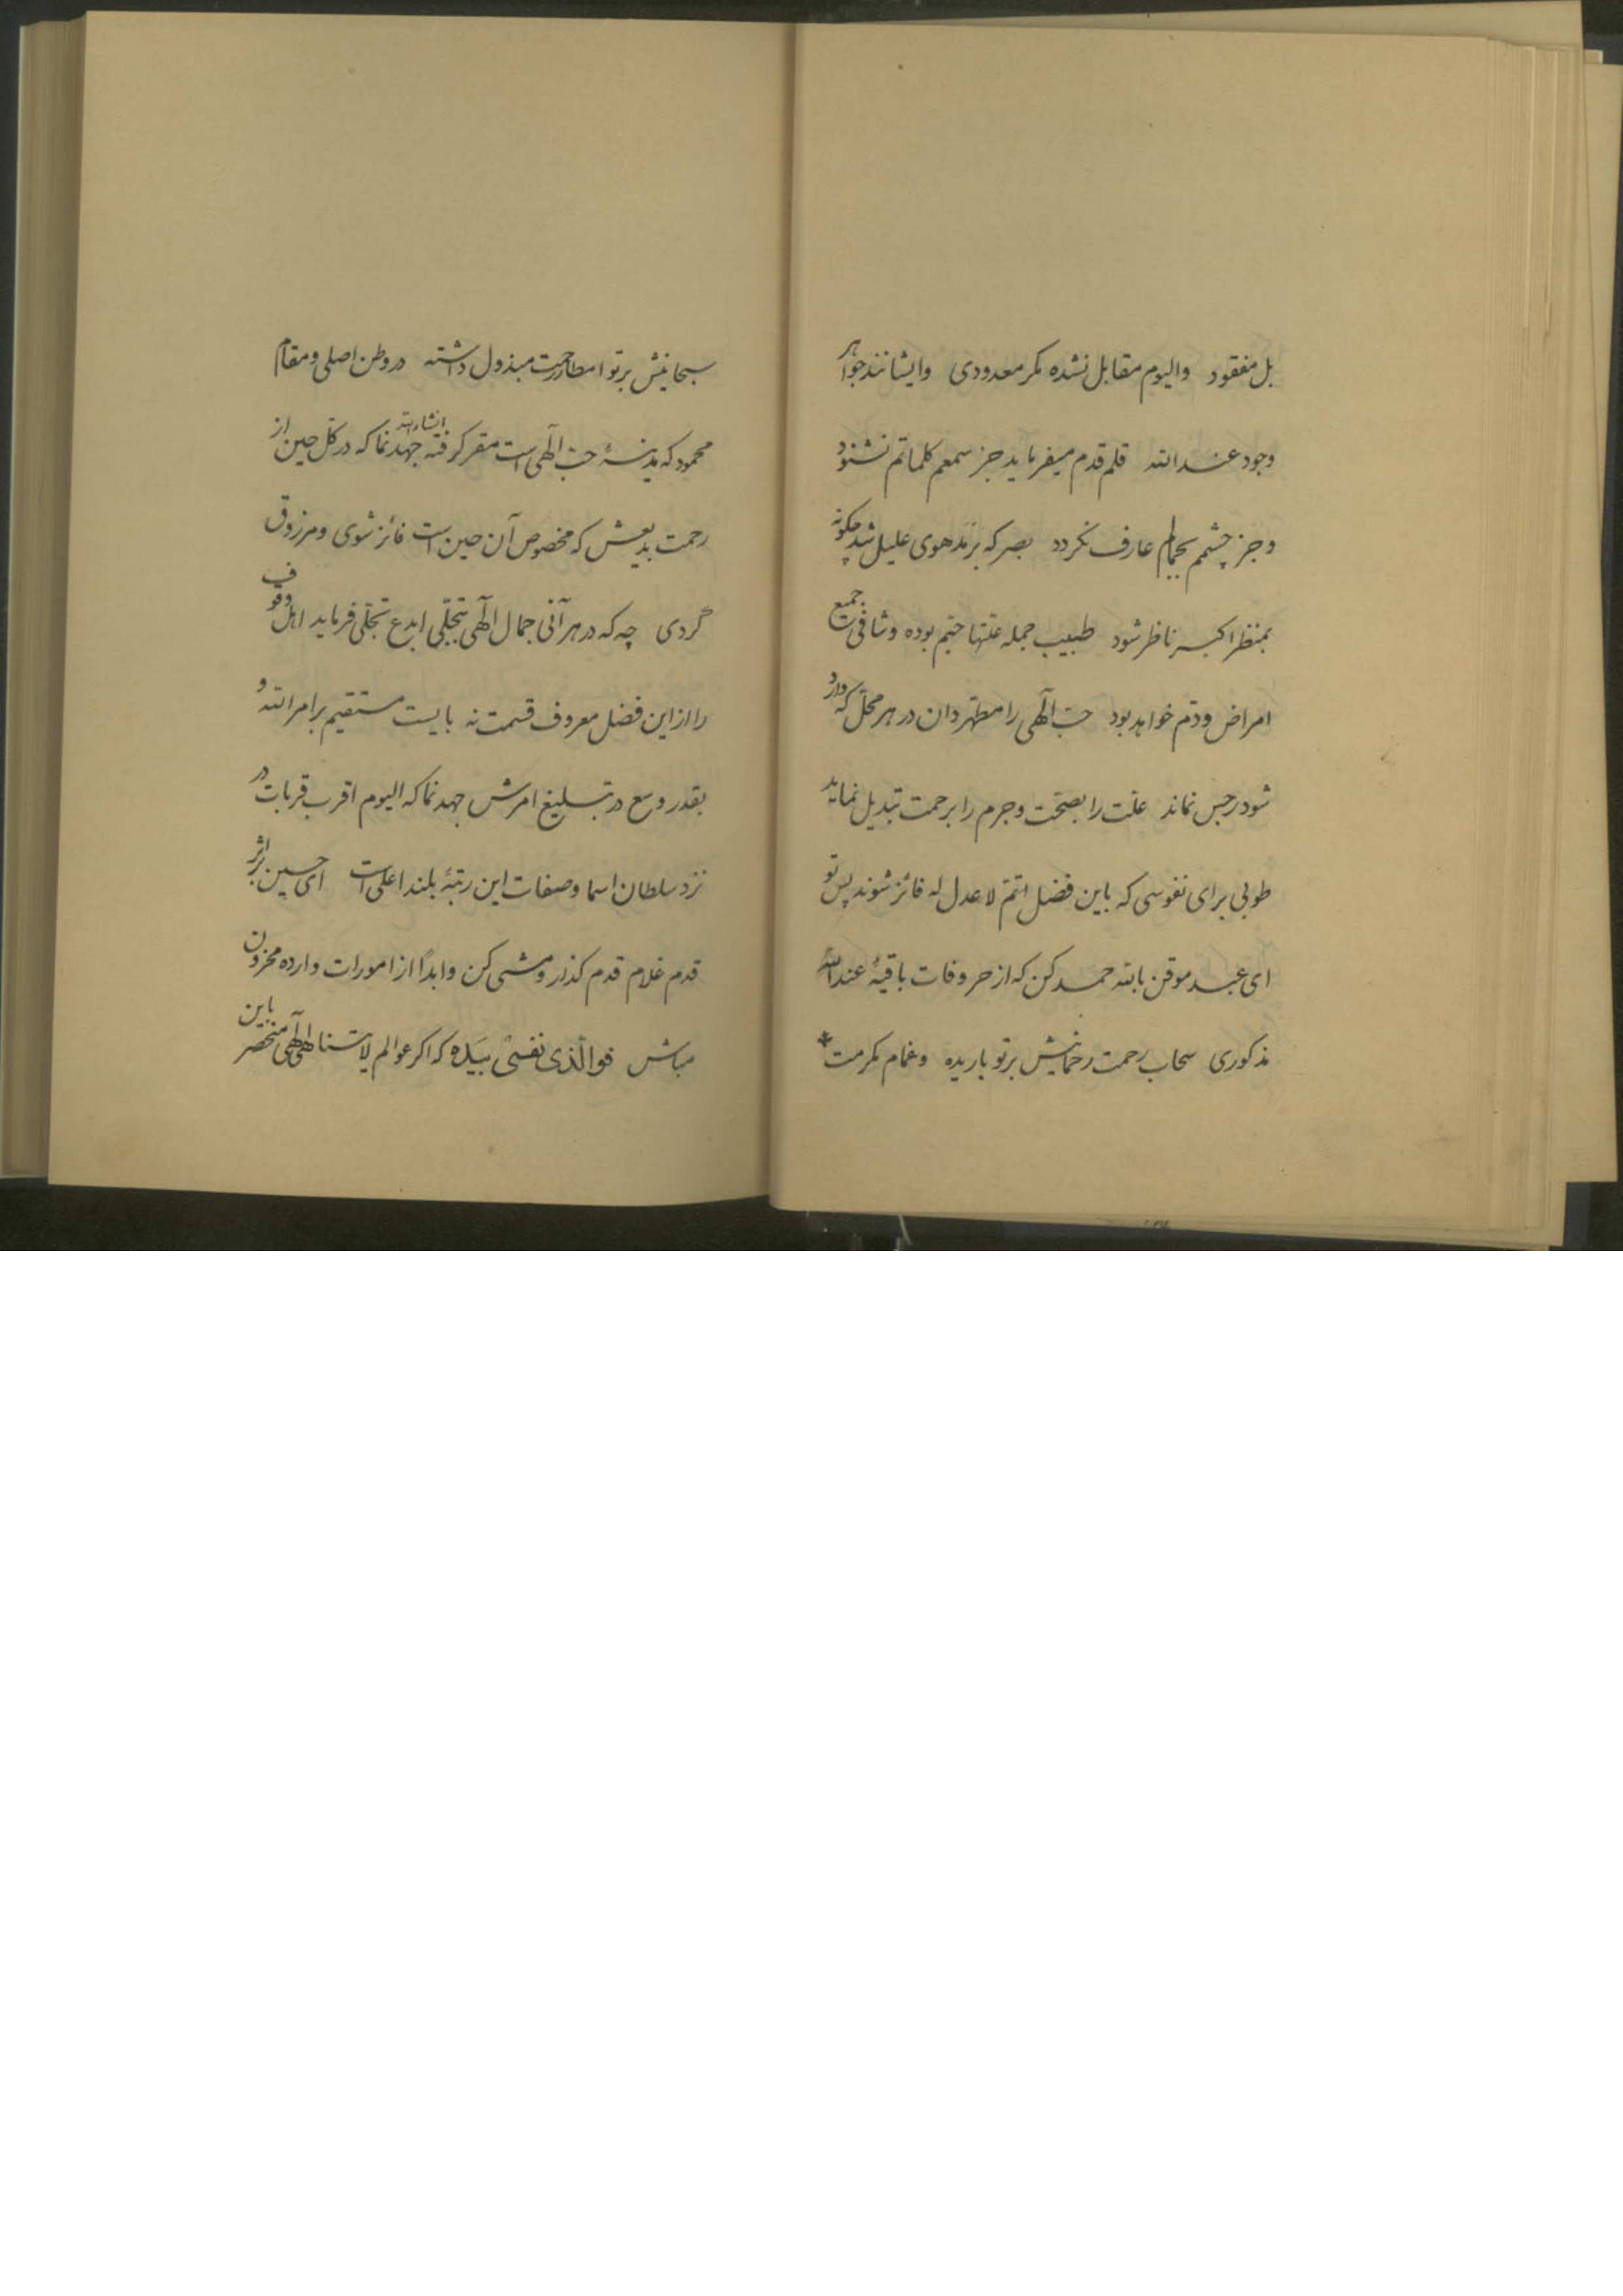 بل مفقود والیوم مقابل نشده مکر معدودی وایشانند جواهر
وجود عند الله قلم قدم میفرماید جز سمعم کلماتم نشنود
و جز چشمم بجمالم عارف نکردد بصر که برمد هوی علیل شد چکونه
بمنظر اکبر ناظر شود طبیب جمله علتها حبّم بوده و شافی جمیع
امراض ودّم خواهد بود حبّ الهی را مطهر دان در هر محلّ که وارد
شود رجس نماند علّت را بصحّت و جرم را برحمت تبدیل نماید
طوبی برای نفوسی که باین فضل اتمّ لا عدل له فائز شوند پس تو
ای عبد موقن بالله حمد کن که از حروفات باقیهٔ عند الله
مذکوری سحاب رحمت رحمانیش برتو باریده و غمام مکرمت
سبحانیش برتو امطار رحمت مبذول داشته در وطن اصلی و مقام
محمود که مدینهٔ حبّ الهی است مقر کرفته انشاءالله جهد نما که در کلّ حین از
رحمت بدیعش که مخصوص آن حین است فائز شوی و مرزوق
گردی چه که در هر آنی جمال الهی بتجلّی ابدع تجلّی فرماید اهل وقوف
را از این فضل معروف قسمت نه بایست مستقیم بر امر الله و
بقدر وسع در تبلیغ امرش جهد نما که الیوم اقرب قربات در
نزد سلطان اسما و صفات این رتبهٔ بلند اعلی است ای حسین بر اثر
قدم غلام قدم کذار و مشی کن و ابداً از امورات وارده محزون
مباش فوالّذی نفسی بیده که اکر عوالم لا یتناهی الهی منحصر باین